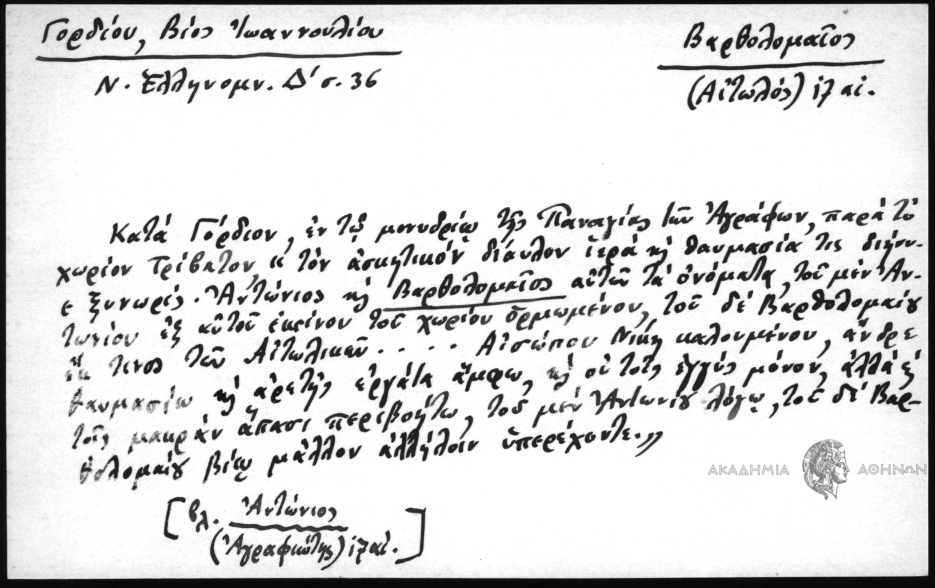 Γορδίου, Βίος Ἰωαννουλίου
Ν. Ἑλληνομν. Δ' σ. 36
Βαρθολομαῖος
(Αἰτωλός) ιζ αἰ.
Κατά Γόρδιον, ἐν τῷ μονυδρίῳ τῆς Παναγίας τῶν Ἀγράφων, παρά τό
χωρίον Τρίβατον, κ τὸν ἀσκητικόν δίαυλον ἱερά κῃ θαυμασία τις διήνυ-
ε ξυνωρίς. Ἀντώνιος κῃ Βαρθολομαῖος αὐτῶν τά ὀνόματα, τοῦ μέν Ἀν-
τωνίου ἐξ αὐτοῦ ἐκείνου τοῦ χωρίου ὁρμωμένου, τοῦ δέ Βαρθολομαίου
ἔκ τινος τῶν Αἰτωλικῶν .... Αἰσώπου Νίκη καλουμένου, ἄνδρε
θαυμασίω κῃ ἀρετῆς ἐργάτα ἄμφω, κῃ οὐ τοῖς ἐγγύς μόνον, ἀλλά ξ
τοῖς μακράν ἅπασι περιβοήτω, τοῦ μέν Ἀντωνίου λόγῳ, τοῦ δέ Βαρ-
θολομαίου βίῳ μᾶλλον ἀλλήλοιν ὑπερέχοντε.»
[βλ. Ἀντώνιος
(Ἀγραφιώτης) ιζ αἰ.]
ΑΚΑΔΗΜΙΑ ΑΘΗΝΩΝ